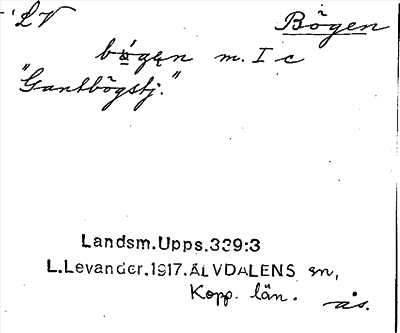 LV Bögen
bǫ́gęn m. I c
"Gantbögstj."
Landsm.Upps.339:3
L.Levander.1917.ÄLVDALENS sn,
Kopp. län.
ås.